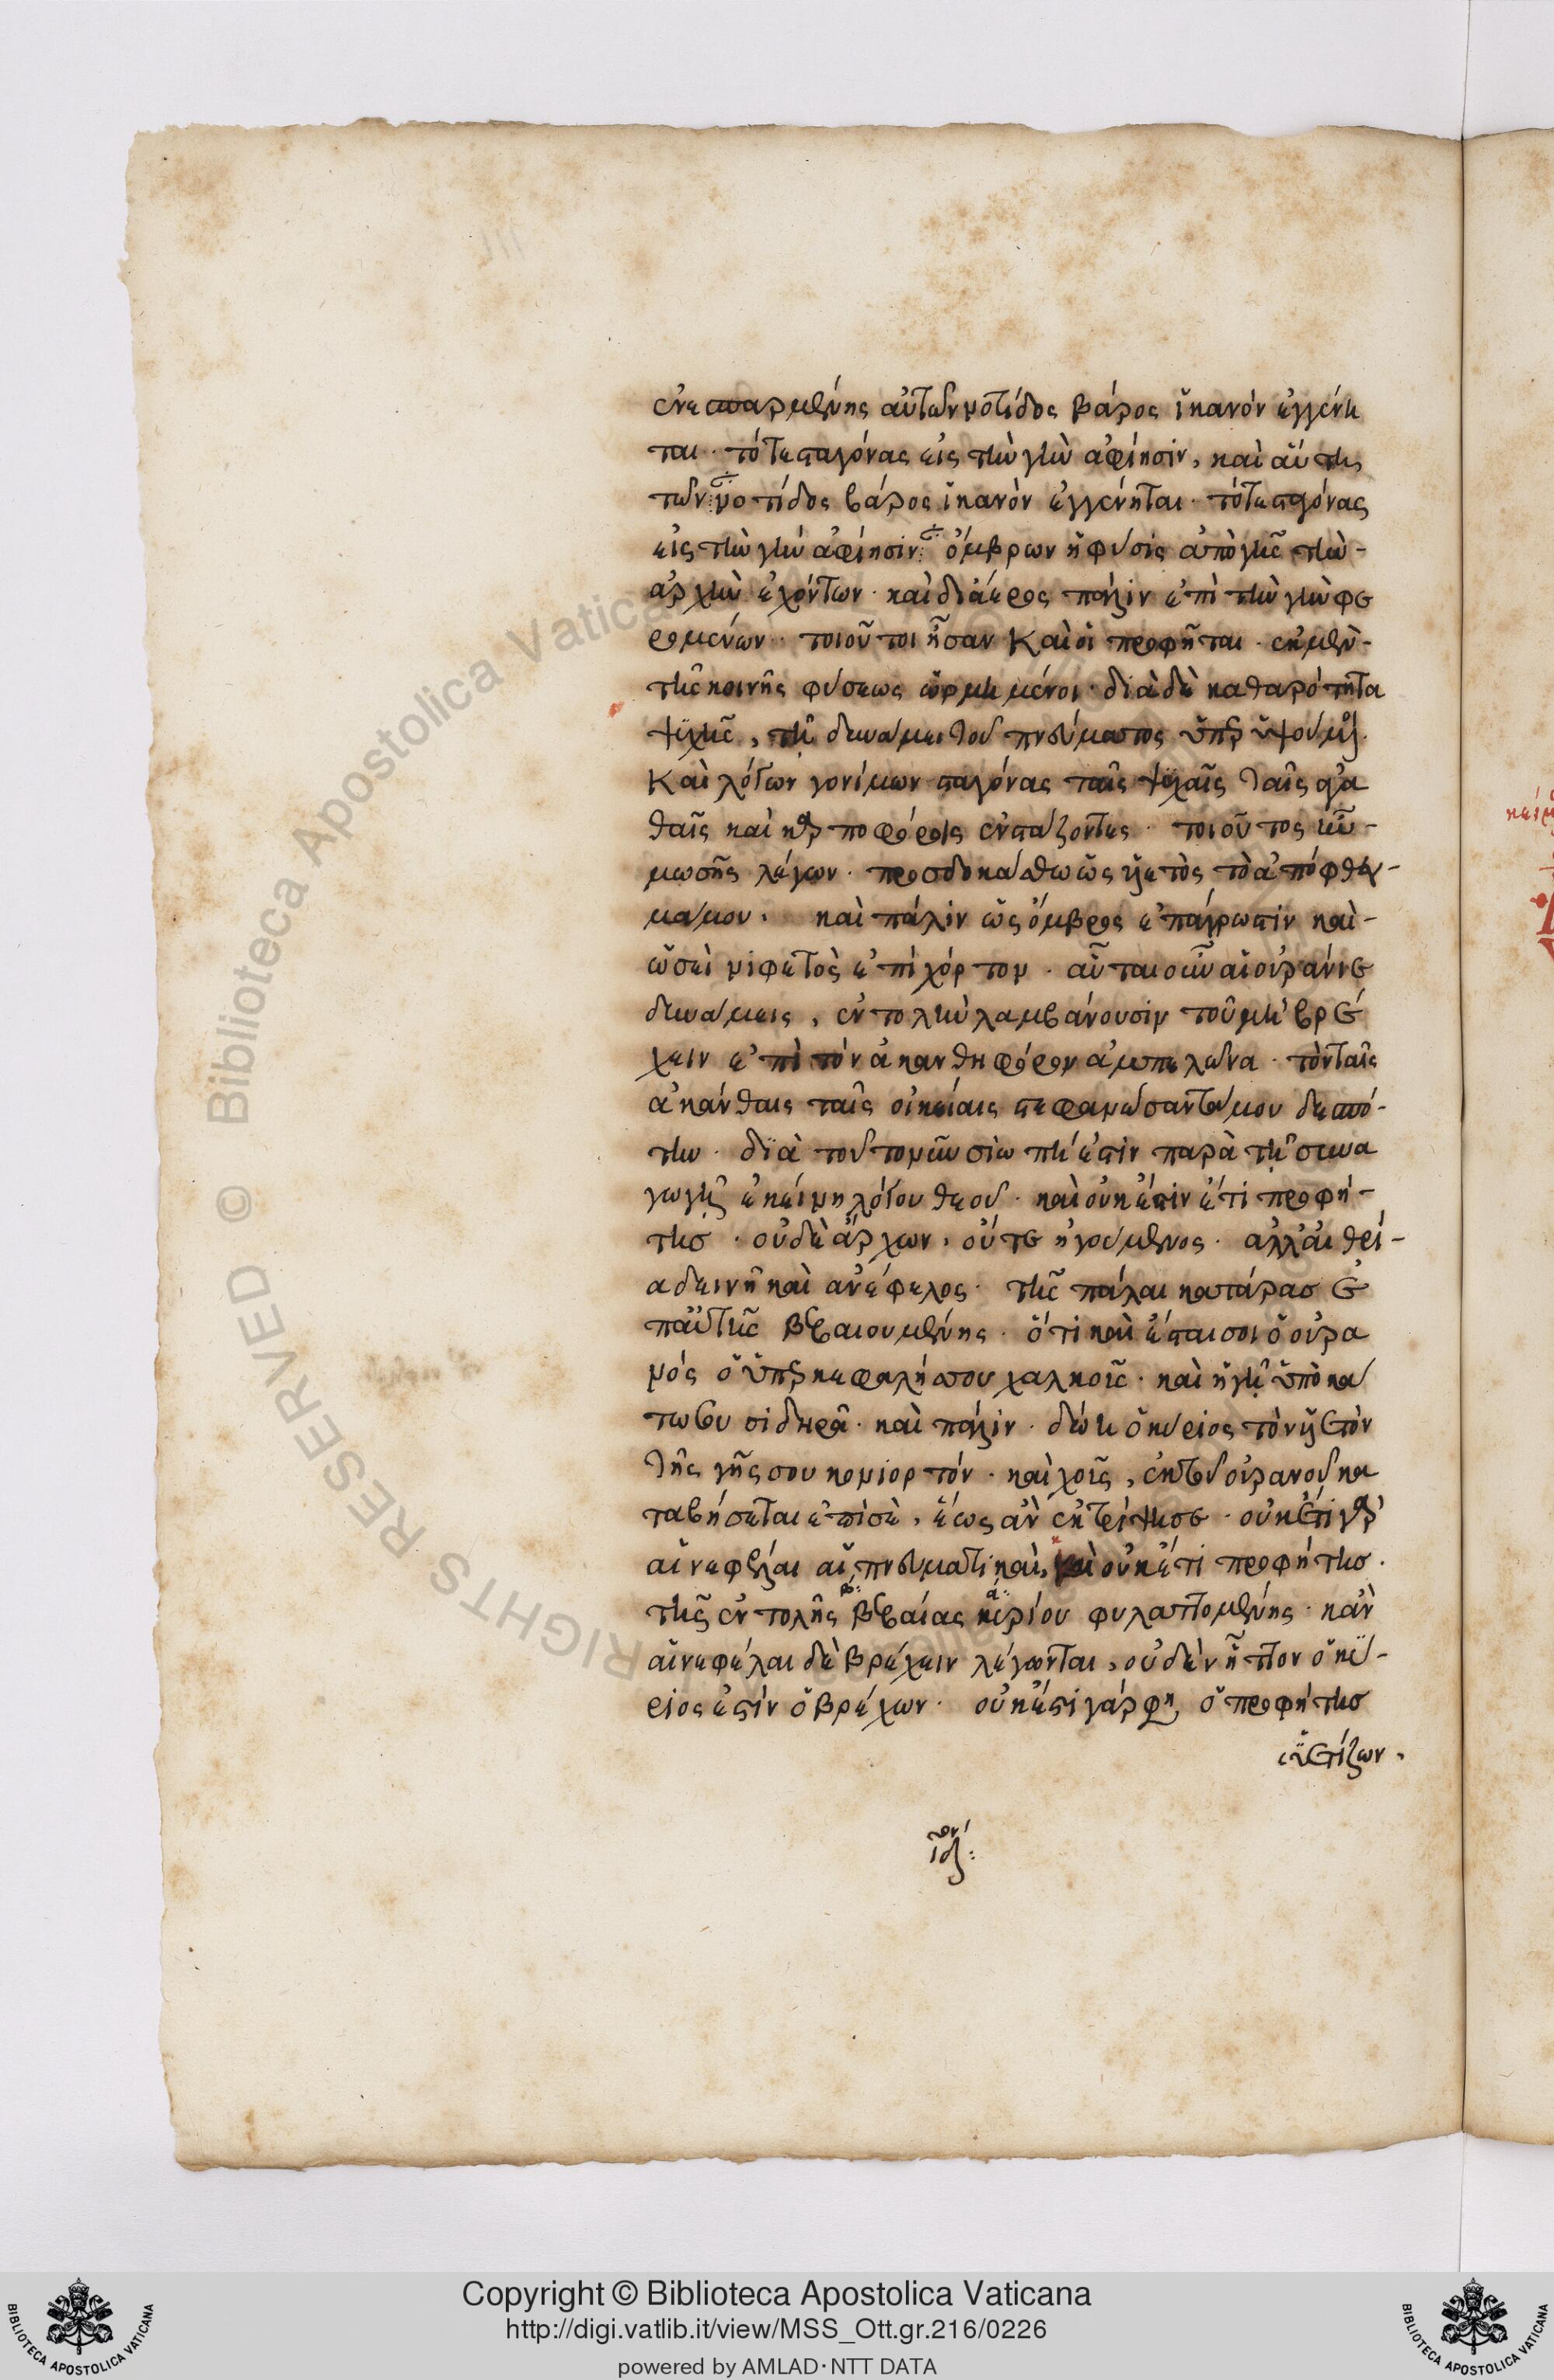 ἐνεσπαρμένης αὐτῶν νοτίδος βάρος ἱκανὸν ἐγγένη
ται· τότε σταγόνας εἰς τὴν γῆν ἀφίησιν, καὶ αὕτη,
τῶν νοτίδος βάρος ἱκανὸν ἐγγένηται· τότε σταγόνας
εἰς τὴν γὴν ἀφίησιν ὄμβρων ἡ φύσις ἀπὸ γῆς τὴν-
ἀρχὴν ἐχόντων· καὶ δι' ἀέρος πάλιν ἐπὶ τὴν γὴν φε
ρομένων· τοιοῦτοι ἦσαν Καὶ οἱ προφῆται· ἐκ μὲν-
τῆς κοινῆς φύσεως ὡρμημένοι· διὰ δὲ καθαρότητα
ψυχῆς, τῇ δυνάμει τοῦ πνεύματος ὑπερυψούμενοι
Καὶ λόγων γονίμων σταγόνας ταῖς ψυχαῖς ταῖς ἀγα
θαῖς καὶ καρποφόροις ἐνστάζοντες· τοιοῦτος ἦν-
μωσῆς λέγων· προσδοκάσθω ὡς ὑετὸς τὸ ἀπόφθεγ-
μα μου· καὶ πάλιν ὡς ὄμβρος ἐπ' ἄγρωστιν καὶ-
ὡσεὶ νιφετὸς ἐπὶ χόρτον· αὗται οὖν αἱ οὐράνιε
δυνάμεις, ἐντολὴν λαμβάνουσιν τοῦ μὴ βρέ
χειν ἐπὶ τὸν ἀκανθηφόρον ἀμπελῶνα· τὸν ταῖς
ἀκάνθαις ταῖς οἰκείαις στεφανώσαντά μου δεσπό-
την· διὰ τοῦτο νῦν σιωπή ἐστιν παρὰ τῇ συνα
γωγῇ ἐκείνη λόγου θεοῦ· καὶ οὐκ ἔστιν ἔτι προφή-
τησ· οὐδὲ ἄρχων, οὔτε ἡγούμενος· ἀλλ' αἰθρί-
α δεινὴ καὶ ἀνέφελος· τῆς πάλαι κατάρασ ἐ
π' αὐτῆς βεβαιουμένης· ὅτι καὶ ἔσται σοι ὁ οὐρα
νός ὁ ὑπὲρ κεφαλήσ σου χαλκοῦς· καὶ ἡ γῆ ὑποκά
τω σου σιδηρᾶ· καὶ πάλιν· δώη ὁ κύριος τὸν ὑετὸν
τῆς γῆς σου κονιορτόν· καὶ χοῦς, ἐκ τοῦ οὐρανοῦ κα
ταβήσεται ἐπὶ σὲ, ἕως ἂν ἐκτρίψη σε· οὐκέτι γὰρ
αἱ νεφέλαι αἱ πνευματικαὶ, καὶ οὐκέτι προφήτησ·
τῆς ἐντολῆς βεβαίας κυρίου φυλαττομένης· κἂν
αἱ νεφέλαι δὲ βρέχειν λέγωνται, οὐδὲν ἧττον ὁ κύ-
ριος ἐστίν ὁ βρέχων· οὐκ ἔστι γάρ φη ὁ προφήτησ
ὑετίζων,
Copyright © Biblioteca Apostolica Vaticana
http://digi.vatlib.it/view/MSS_Ott.gr.216/0226
powered by AMLAD·NTT DATA